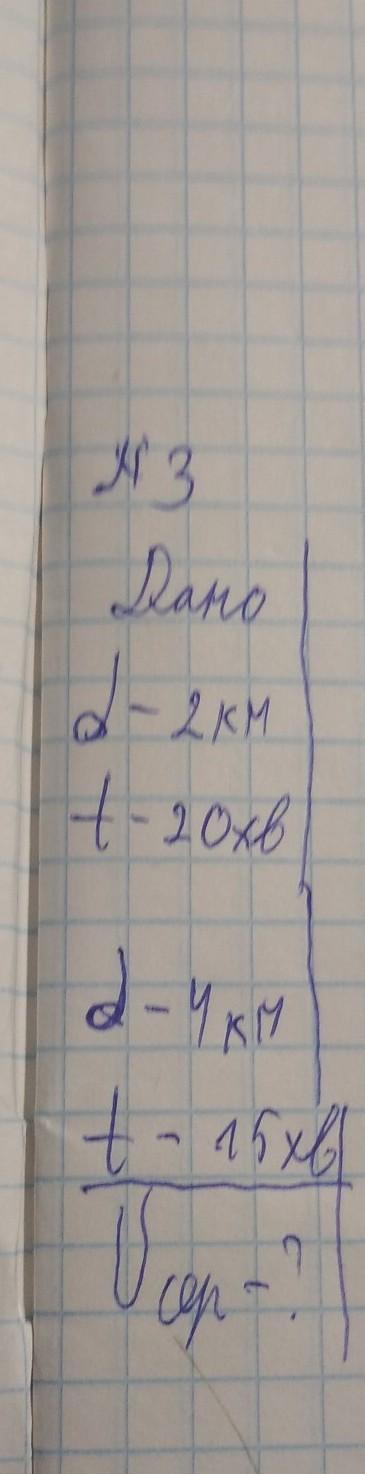 №3
Дано
d - 2 км
t - 20 хв
d - 4 км
t - 15 хв
Vсер - ?